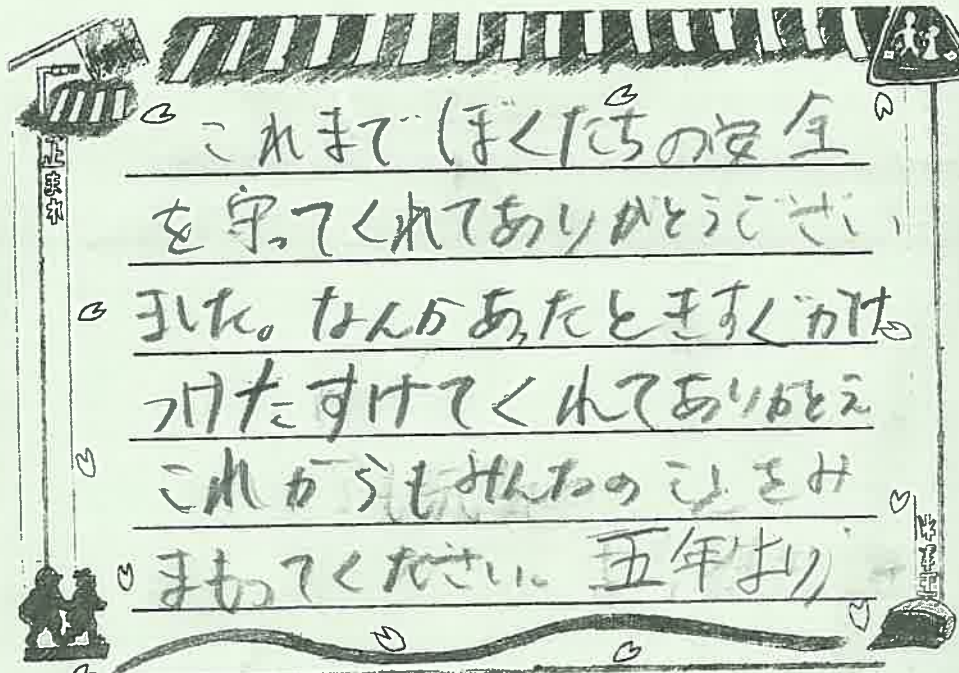 止まれ
これまでぼくたちの安全
を守ってくれてありがとうござい
ました。なんかあったときすぐかけ
つけたすけてくれてありがとえ
これからもみんなのことをみ
まもってください。五年より